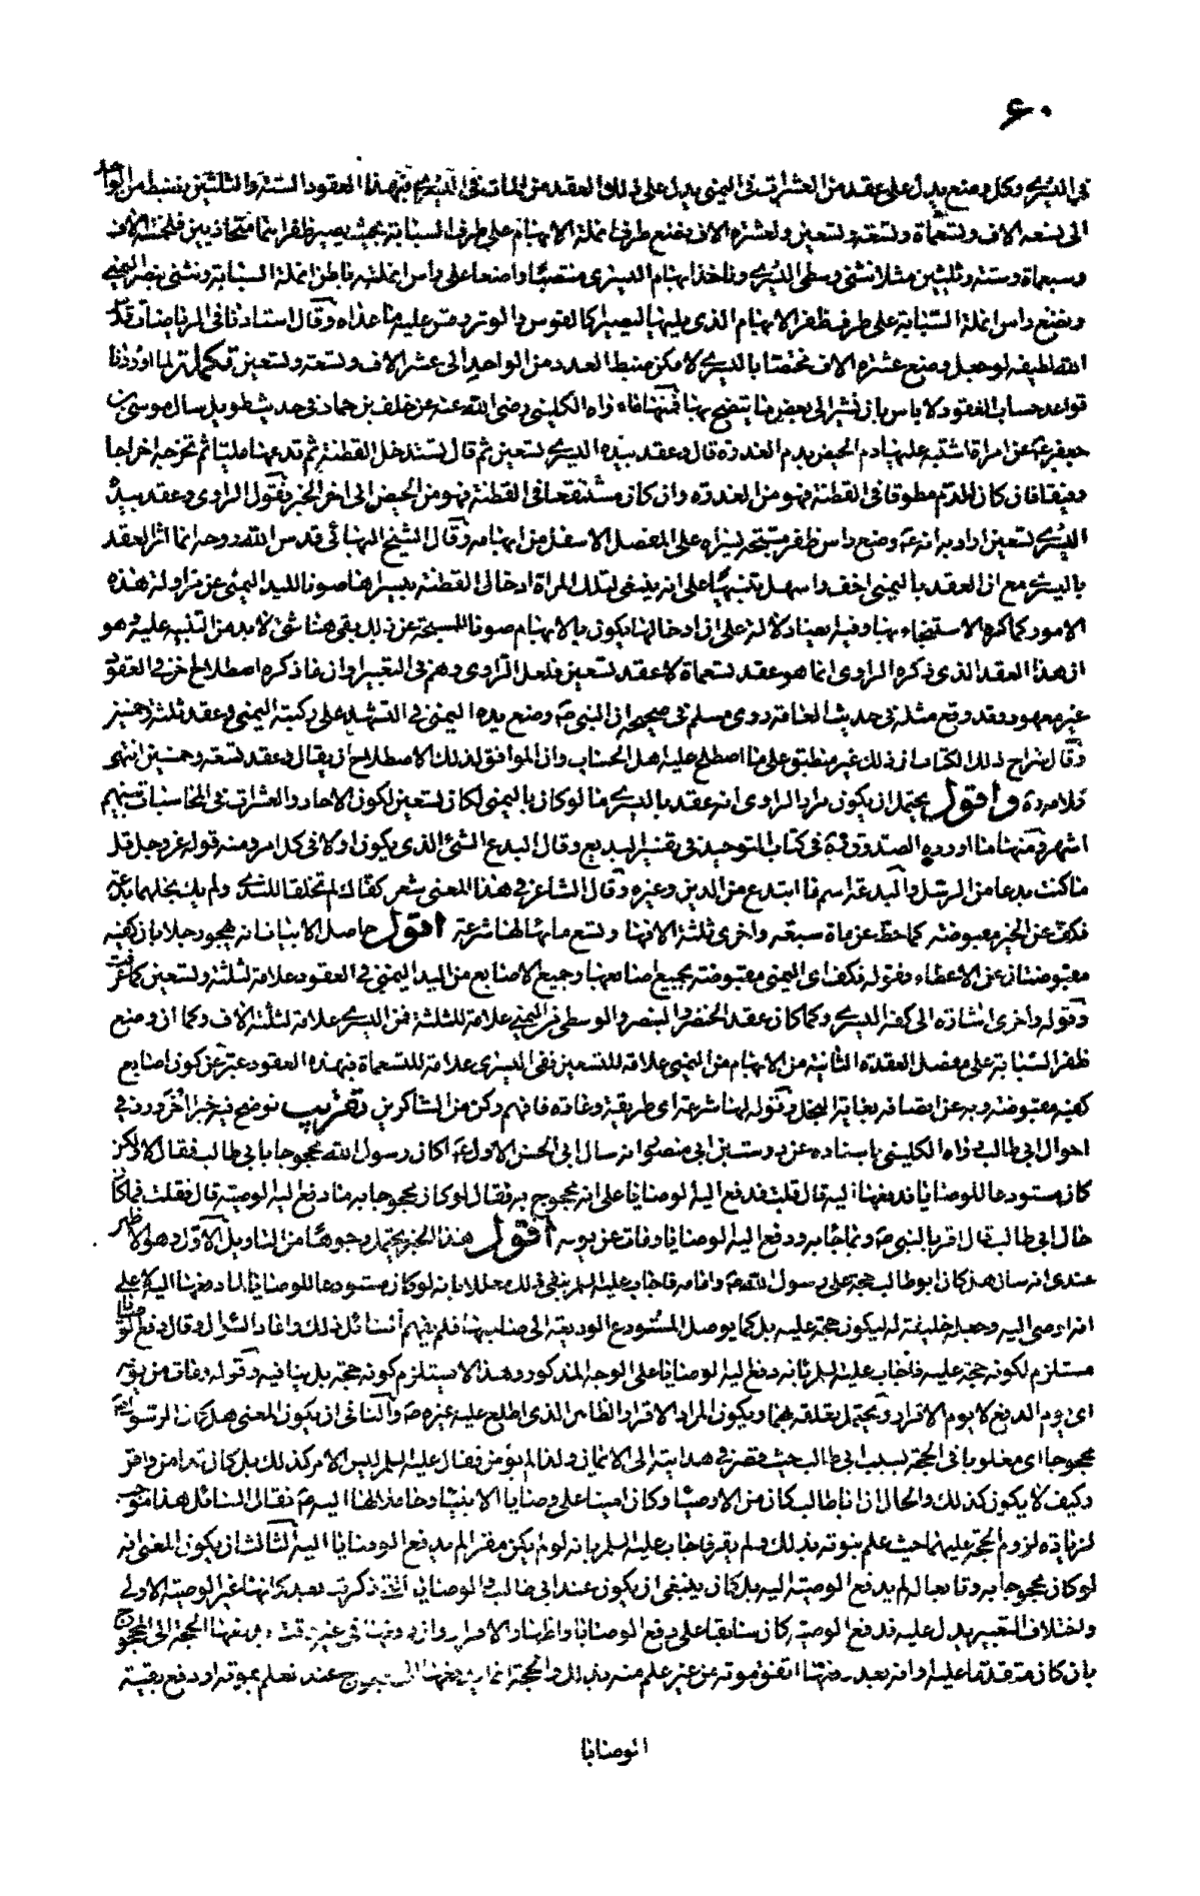 ۶۰
في اليسرى وكل وضع يدل على عقد من العشرات في اليمنى يدل على ذلك العقد من المات في اليسرى فبهذا العقود الستة والثلثين ينضبط من الواحد
الى تسعة الاف وتسعماة وتسعة وتسعين ولعشرة الاف يضع طرف انملة الابهام على طرف السبابة بحيث يصير ظفراهما متحاذيين فلخمسة الاف
وسبعماة وستة وثلثين مثلا نثنى وسطى اليسرى وناخذ ابهام اليسرى منتصبا واضعا على راس انملته باطن انملة السبابة ونثنى بنصر اليمنى
ونضع راس انملة السبابة على طرف ظفر الابهام الذي يليها ليصيرا كالقوس والوتر وقس عليه ما عداه وقال استادنا في الرياضيات قدس
الله لطيفه لو جعل وضع عشرة الاف مختصا باليسرى لامكن ضبط العدد من الواحد الى عشرة الاف وتسعة وتسعين تكملة لما اوردنا
قواعد حساب العقود لا باس بان نشير الى بعض ما يتضح بها فمنها ما رواه الكليني رضى الله عنه عن خلف بن حماد في حديث طويل سال موسى بن
جعفر ع عن امراة اشتبه عليها دم الحيض بدم العذرة قال وعقد بيده اليسرى تسعين ثم قال تستدخل القطنة ثم تدعها مليا ثم تخرجه اخراجا
رفيقا فان كان الدم مطوقا في القطنة فهو من العذرة وان كان مستنقعا في القطنة فهو من الحيض الى اخر الخبر فقول الراوى وعقد بيده
اليسرى تسعين اراد به انه ع وضع راس ظفر مسبحته يسراه على المفصل الاسفل من ابهامه وقال الشيخ البهائي قدس الله روحه انما اثر العقد
باليسرى مع ان العقد باليمنى اخف واسهل تنبيها على انه ينبغي لتلك المراة ادخال القطنة بيسراها صونا لليد اليمنى عن مزاولة هذه
الامور كما كره الاستنجاء بها وفيه ايضا دلالة على ان ادخالها يكون بالابهام صونا للمسبحة عن ذلك بقى هنا شئ لابد من التنبيه عليه وهو
ان هذا العقد الذي ذكره الراوى انما هو عقد تسعماة لا عقد تسعين فلعل الراوى وهم في التعبير او ان ما ذكره اصطلاح اخر في العقود
غير معهود وقد وقع مثله في حديث العامة روى مسلم في صحيحه ان النبي ص وضع يده اليمنى في التشهد على ركبته اليمنى وعقد ثلثة وخمسين
وقال شراح ذلك الكتاب ان ذلك غير منطبق على ما اصطلح عليه اهل الحساب وان الموافق لذلك الاصطلاح ان يقال وعقد تسعة وخمسين انتهى
كلامه ره واقول يحتمل ان يكون مراد الراوى انه عقد باليسرى ما لو كان باليمنى لكان تسعين لكون الاحاد والعشرات في المحاسبات بينهم
اشهر ومنها ما اورده الصدوق ره في كتاب التوحيد في تفسير البديع وقال البدع الشئ الذي يكون اولا في كل امر ومنه قوله عز وجل قل
ما كنت بدعا من الرسل والبدعة اسم ما ابتدع من الدين وغيره وقال الشاعر في هذا المعنى شعر كفاك لم تخلقا للندى ولم يك بخلهما بدعة
فكف عن الخير مقبوضة كما حط عن ماة سبعة واخرى ثلثة الافها وتسع مائها لها شرعة اقول حاصل الابيات انه يهجو رجلا بان كفيه
مقبوضتان عن الاعطاء وقوله فكف اى اليمنى مقبوضة بجميع اصابعها وجميع الاصابع من اليد اليمنى في العقود علامة ثلثة وتسعين كما عرفت
وقوله واخرى اشارة الى كفه اليسرى وكما كان عقد الخنصر والبنصر والوسطى من اليمنى علامة للثلثة فمن اليسرى علامة لثلثة الاف وكما ان وضع
ظفر السبابة على مفصل العقدة الثانية من الابهام من اليمنى علامة للتسعين ففي اليسرى علامة للتسعماة فبهذه العقود عبر عن كون اصابع
كفيه مقبوضة وبه عن اتصافه بغاية البخل وقوله لها شرعة اى طريقة وعادة فافهم وكن من الشاكرين تقريب توضح فيه خبرا اخر ورد في
احوال ابي طالب رواه الكليني باسناده عن درست بن ابي منصور انه سال ابا الحسن الاول ع اكان رسول الله محجوجا بابي طالب فقال لا ولكن
كان مستودعا للوصايا فدفعها اليه قال قلت فدفع اليه الوصايا على انه محجوج به فقال لو كان محجوجا به ما دفع اليه الوصية قال فقلت فما كان
حال ابي طالب قال اقر بالنبي ص وبما جاء به ودفع اليه الوصايا ومات من يومه اقول هذا الخبر يحتمل وجوها من التاويل الاول وهو الاظهر
عندى انه سال هل كان ابو طالب حجة على رسول الله ص واماما له فاجاب عليه السلم بنفي ذلك معللا بانه لو كان مستودعا للوصايا لما دفعها اليه لا على
انه اوصى اليه وجعله خليفة له ليكون حجة عليه بل كما يوصل المستودع الوديعة الى صاحبها فلم يفهم السائل ذلك واعاد السؤال وقال دفع الوصايا
مستلزم لكونه حجة عليه فاجاب عليه السلم بانه دفع اليه الوصايا على الوجه المذكور وهذا لا يستلزم كونه حجة بل ينافيه وقوله ومات من يومه
اى يوم الدفع لا يوم الاقرار ويحتمل تعلقه بهما ويكون المراد الاقرار الظاهر الذي اطلع عليه غيره ص والثاني ان يكون المعنى هل كان الرسول
محجوجا اى مغلوبا في الحجة بسبب ابي طالب حيث قصر في هدايته الى الايمان ولذا لم يؤمن فقال عليه السلم ليس الامر كذلك بل كان قد امن واقر
وكيف لا يكون كذلك والحال ان ابا طالب كان من الاوصياء وكان امينا على وصايا الانبياء وحاملا لها اليه ص فقال السائل هذا موجب
لزيادة لزوم الحجة عليهما حيث علم نبوته بذلك ولم يقر فاجاب عليه السلم بانه لو لم يكن مقرا لم يدفع الوصايا اليه الثالث ان يكون المعنى انه
لو كان محجوجا به وتابعا له لم يدفع الوصية اليه بل كان ينبغي ان يكون عند ابي طالب والوصايا التي ذكرت بعد كانها غير الوصية الاولى
واختلاف التعبير يدل عليه فدفع الوصية كان سابقا على دفع الوصايا واظهار الاقرار وان دفعها في غير وقت دفعها الحجة الى المحجوج
بان كان متقدما عليه او انه بعد دفعها اتفق موته من غير علم منه بذلك والحجة انما يدفعها الى المحجوج عند العلم بموته او دفع بقية
الوصايا